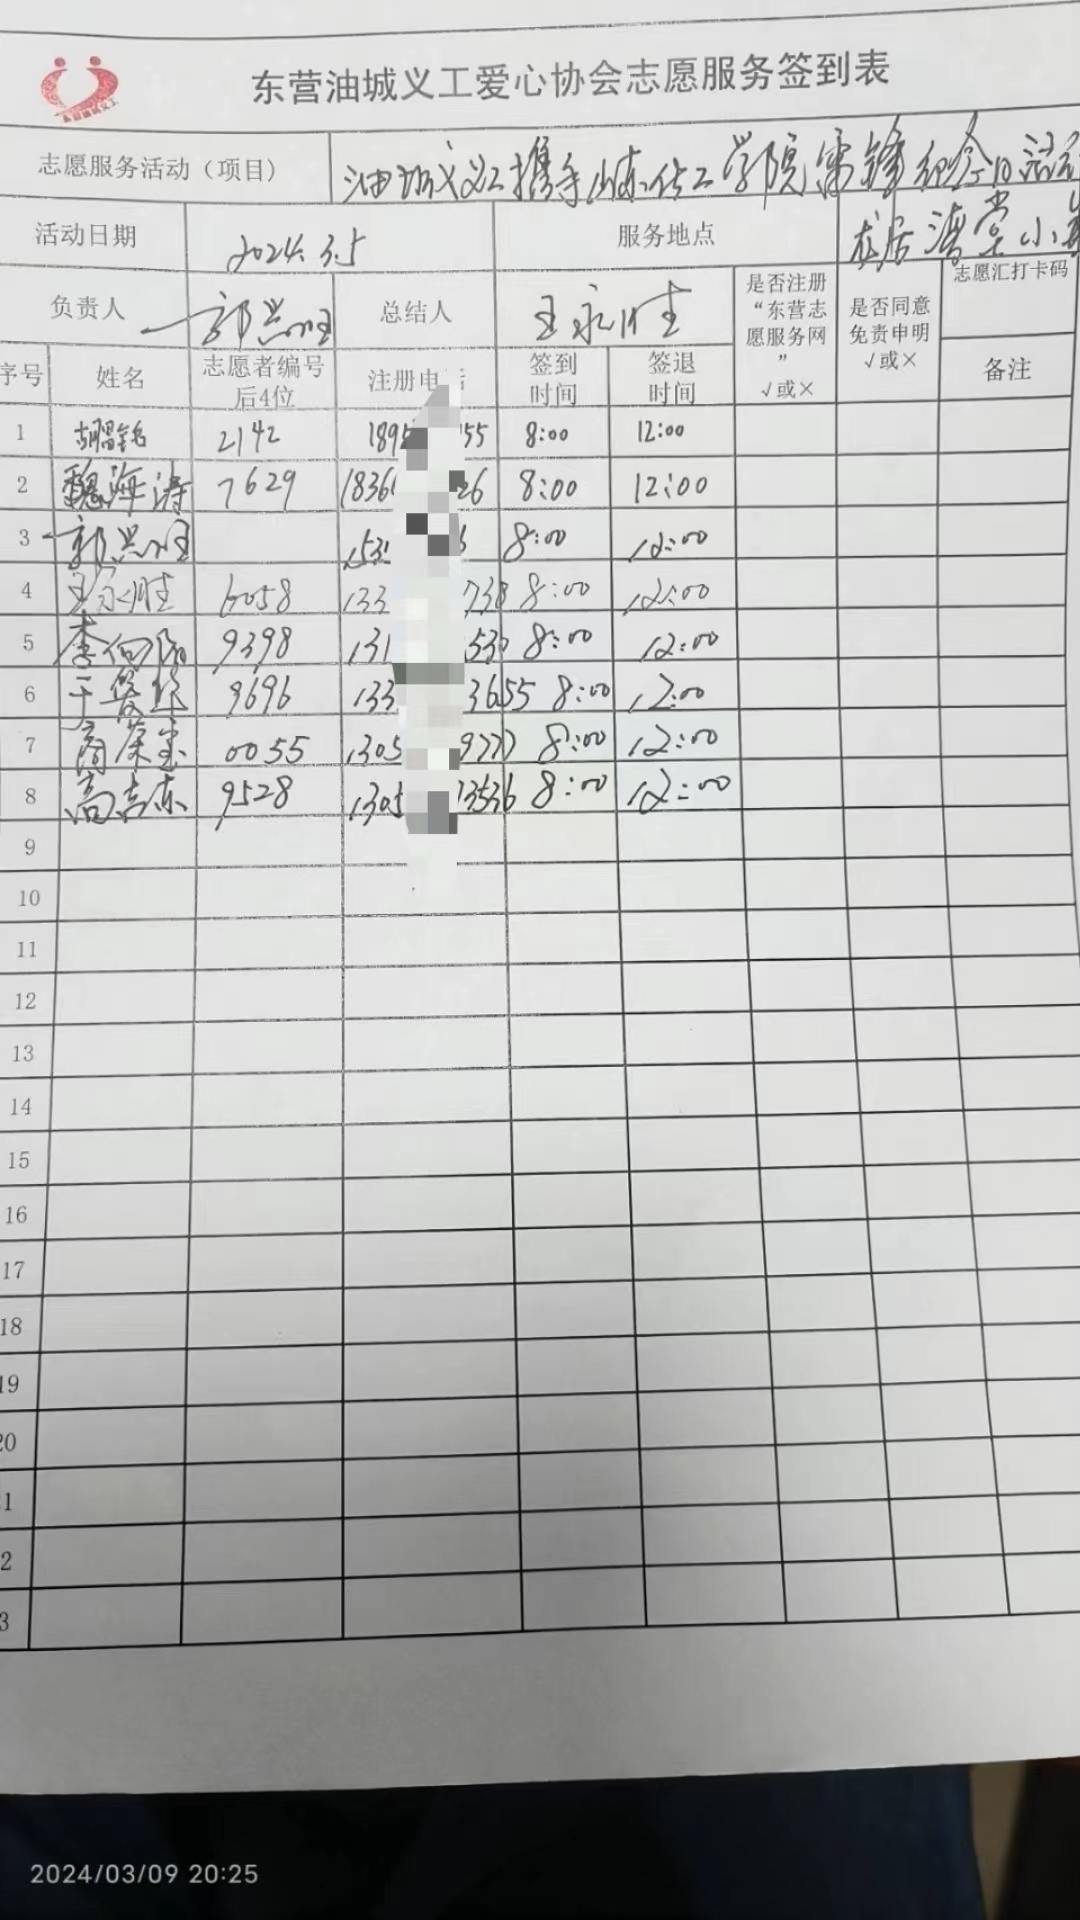 东营油城义工爱心协会志愿服务签到表
志愿服务活动（项目） 油城义工携手山东化工学院雷锋纪念日活动
活动日期 2024.3.5 服务地点 龙居
负责人 郭兴旺 总结人 王永胜 是否注册“东营志愿服务网”√或× 是否同意免责申明√或× 志愿汇打卡码
序号 姓名 志愿者编号后4位 注册电话 签到时间 签退时间 备注
1 胡 2142 1895 55 8:00 12:00
2 魏海涛 7629 1836 26 8:00 12:00
3 郭兴旺 153 8:00 12:00
4 王永胜 6058 133 738 8:00 12:00
5 李向阳 9398 131 530 8:00 12:00
6 于 9696 133 3655 8:00 12:00
7 0055 1305 9777 8:00 12:00
8 高志东 9528 1305 13536 8:00 12:00
9
10
11
12
13
14
15
16
17
18
19
20
1
2
3
2024/03/09 20:25